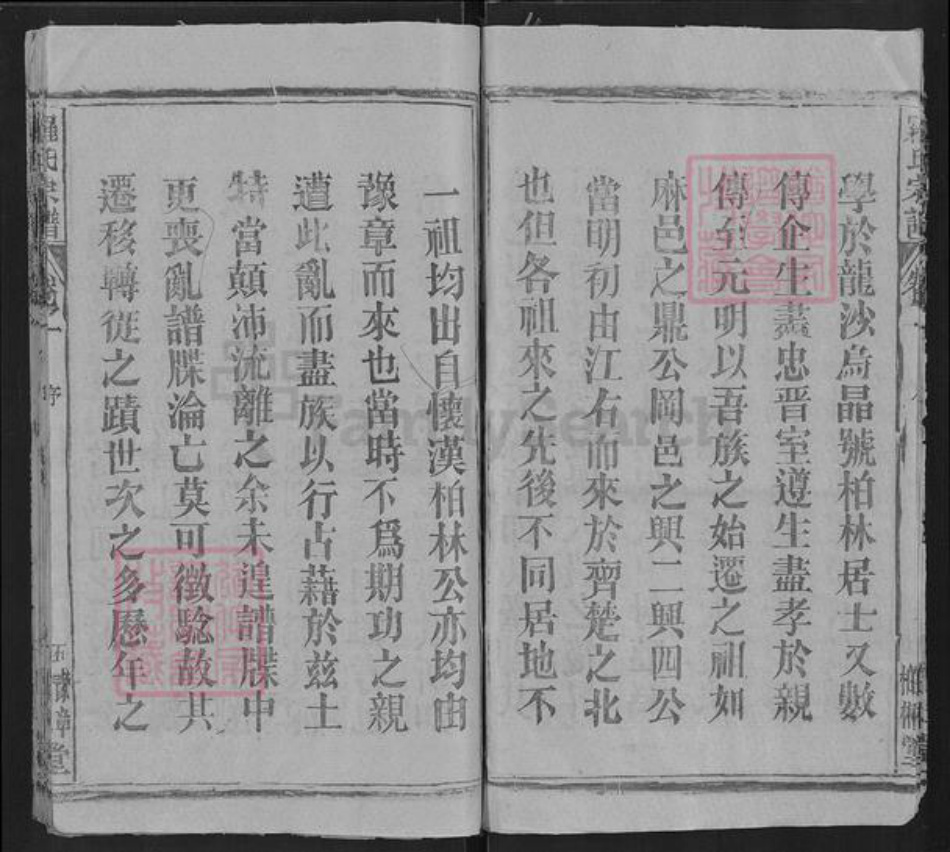 學於龍沙烏晶號柏林居士又數
傳企生蓋忠晋室遵生盡孝於親
傳至元明以吾族之始遷之祖如
麻邑之鼎公岡邑之興二興四公
當明初由江右而來於齊楚之北
也但各祖來之先後不同居地不
一祖均出自懷漢柏林公亦均由
豫章而來也當時不爲期功之親
遭此亂而盡族以行占藉於兹土
特當顛沛流離之余未遑譜牒中
更喪亂譜牒淪亡莫可徵騐故其
遷移轉徙之蹟世次之多歷年之
氏宗譜
卷一
序
五
堂
FamilySearch